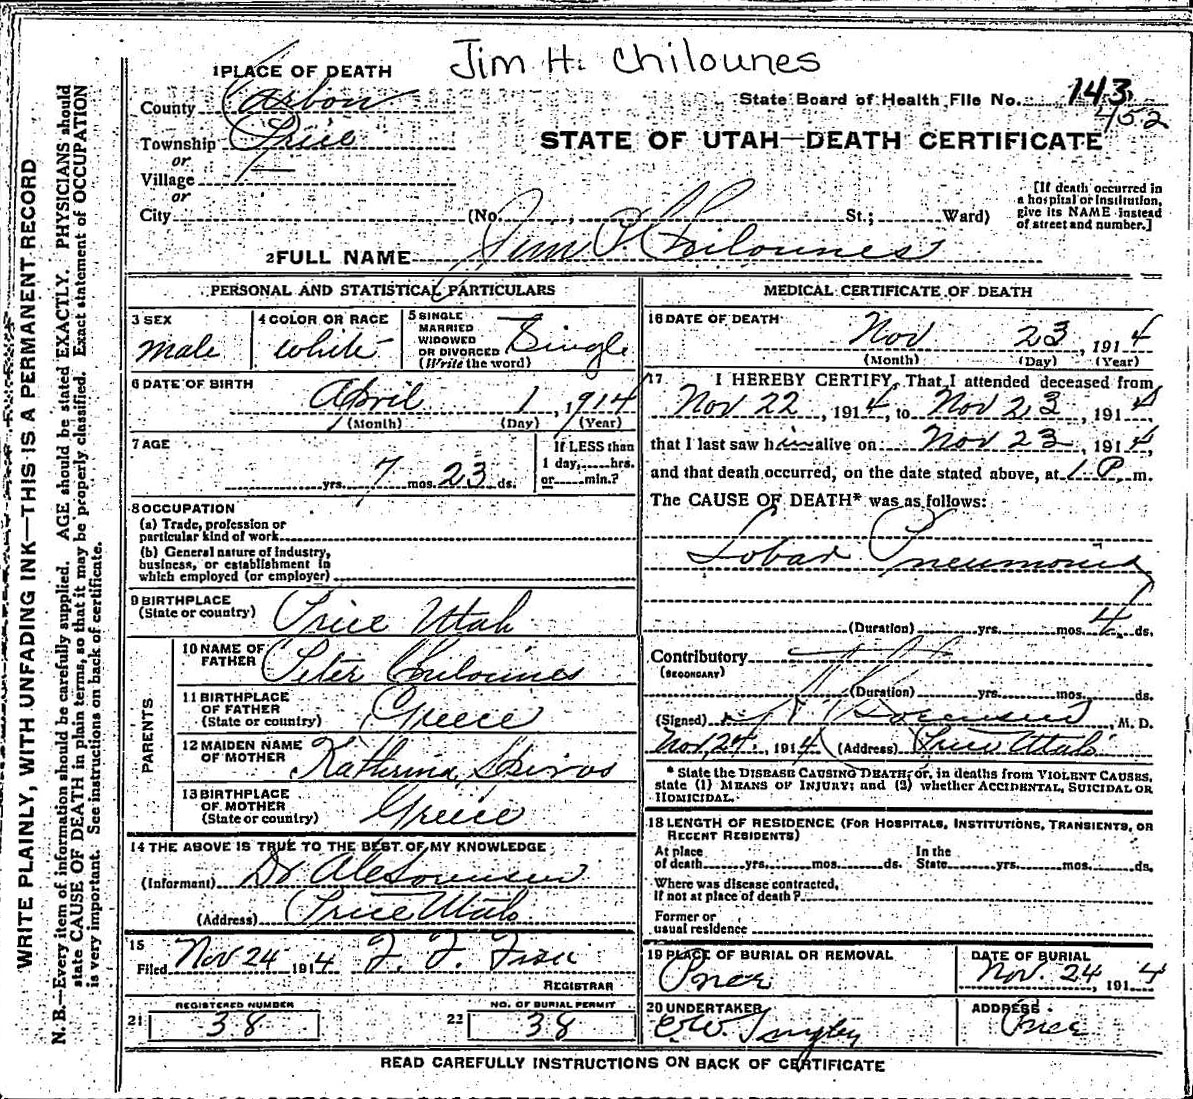 Jim H. Chilounes
1 PLACE OF DEATH
County Carbon
State Board of Health File No. 143
452
Township Price
or
Village
or
STATE OF UTAH—DEATH CERTIFICATE
[If death occurred in a hospital or institution, give its NAME instead of street and number.]
City (No. , St.; Ward)
2 FULL NAME Jim P Chilounes
PERSONAL AND STATISTICAL PARTICULARS
3 SEX male
4 COLOR OR RACE white
5 SINGLE MARRIED WIDOWED OR DIVORCED (Write the word) Single
6 DATE OF BIRTH
April 1, 1914
(Month) (Day) (Year)
7 AGE
yrs. 7 mos. 23 ds.
If LESS than
1 day, hrs.
or min.?
8 OCCUPATION
(a) Trade, profession or
particular kind of work
(b) General nature of industry,
business, or establishment in
which employed (or employer)
9 BIRTHPLACE
(State or country) Price Utah
PARENTS
10 NAME OF
FATHER Peter Chilounes
11 BIRTHPLACE
OF FATHER
(State or country) Greece
12 MAIDEN NAME
OF MOTHER Katherina Spiros
13 BIRTHPLACE
OF MOTHER
(State or country) Greece
14 THE ABOVE IS TRUE TO THE BEST OF MY KNOWLEDGE
(Informant) Dr Sorensen
(Address) Price Utah
15
Filed Nov 24 1914
REGISTRAR
REGISTERED NUMBER
21 38
NO. OF BURIAL PERMIT
22 38
MEDICAL CERTIFICATE OF DEATH
16 DATE OF DEATH
Nov 23, 1914
(Month) (Day) (Year)
17 I HEREBY CERTIFY, That I attended deceased from
Nov 22, 1914, to Nov 23, 1914
that I last saw him alive on Nov 23, 1914,
and that death occurred, on the date stated above, at 1 P. m.
The CAUSE OF DEATH* was as follows:
Lobar Pneumonia
(Duration) yrs. mos. 4 ds.
Contributory
(SECONDARY)
(Duration) yrs. mos. ds.
(Signed) Sorensen, M. D.
Nov 24, 1914 (Address) Price Utah
* State the DISEASE CAUSING DEATH, or, in deaths from VIOLENT CAUSES,
state (1) MEANS OF INJURY; and (2) whether ACCIDENTAL, SUICIDAL OR
HOMICIDAL.
18 LENGTH OF RESIDENCE (FOR HOSPITALS, INSTITUTIONS, TRANSIENTS, OR
RECENT RESIDENTS)
At place In the
of death yrs. mos. ds. State yrs. mos. ds.
Where was disease contracted,
if not at place of death?
Former or
usual residence
19 PLACE OF BURIAL OR REMOVAL
Price
DATE OF BURIAL
Nov. 24, 1914
20 UNDERTAKER
ADDRESS
Price
READ CAREFULLY INSTRUCTIONS ON BACK OF CERTIFICATE
WRITE PLAINLY, WITH UNFADING INK—THIS IS A PERMANENT RECORD
N. B.—Every item of information should be carefully supplied. AGE should be stated EXACTLY. PHYSICIANS should
state CAUSE OF DEATH in plain terms, so that it may be properly classified. Exact statement of OCCUPATION
is very important. See instructions on back of certificate.